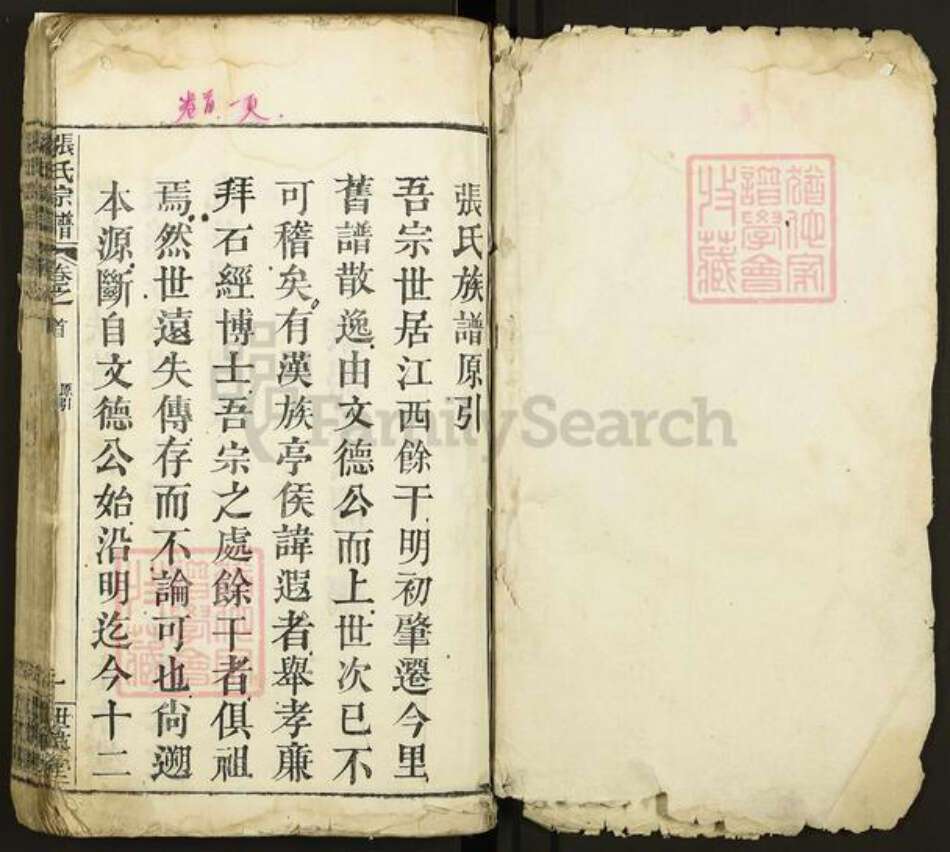 猶他家
譜學會
收藏
卷首一頁.
張氏族譜原引
吾宗世居江西餘干明初肇遷今里
舊譜散逸由文德公而上世次已不
可稽矣有漢族亭侯諱遐者舉孝廉
拜石經博士吾宗之處餘干者俱祖
焉然世遠失傳存而不論可也尙遡
本源斷自文德公始沿明迄今十二
張氏宗譜 卷之首 原引 一
FamilySearch